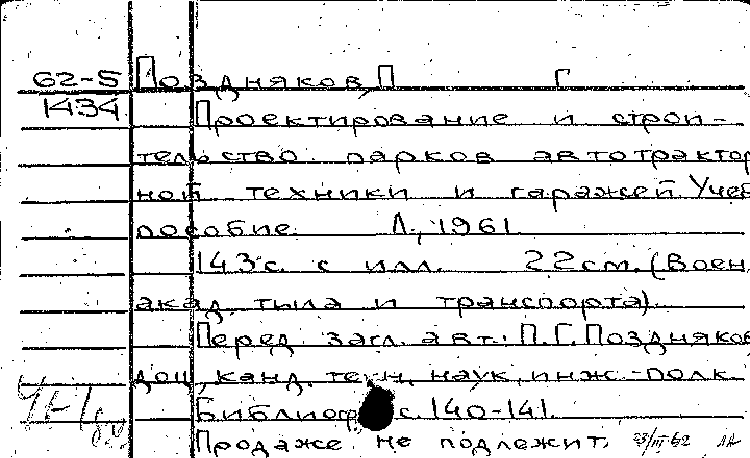 62-5 Поздняков, П Г
1434 Проектирование и строи-
тельство парков автотрактор
ной техники и гаражей Учеб
пособие. Л., 1961
143 с. с илл. 22 см. (Воен.
акад. тыла и транспорта)
Перед загл. авт.: П.Г. Поздняков
доц., канд. техн. наук, инж.-полк
Библиогр с. 140-141.
Продаже не подлежит.